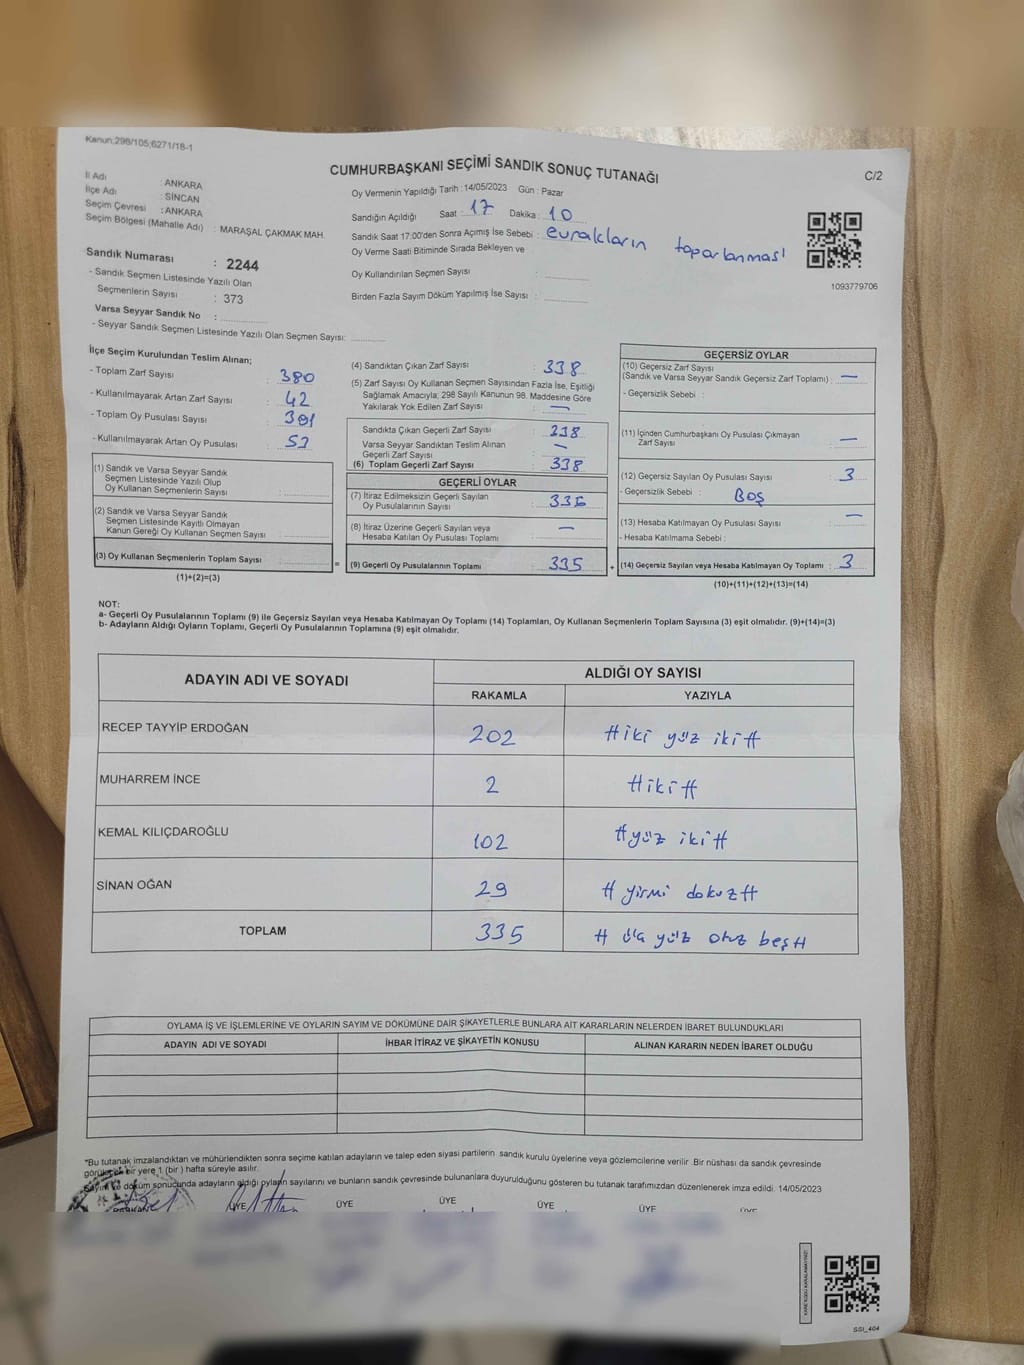 Kanun:298/105;6271/18-1
CUMHURBAŞKANI SEÇİMİ SANDIK SONUÇ TUTANAĞI
C/2
İl Adı : ANKARA
İlçe Adı : SİNCAN
Seçim Çevresi : ANKARA
Seçim Bölgesi (Mahalle Adı) : MARAŞAL ÇAKMAK MAH.
Sandık Numarası : 2244
- Sandık Seçmen Listesinde Yazılı Olan
Seçmenlerin Sayısı : 373
Varsa Seyyar Sandık No :
- Seyyar Sandık Seçmen Listesinde Yazılı Olan Seçmen Sayısı:
Oy Vermenin Yapıldığı Tarih :14/05/2023 Gün : Pazar
Sandığın Açıldığı Saat : 17 Dakika : 10
Sandık Saat 17:00'den Sonra Açımış İse Sebebi : evrakların toparlanması
Oy Verme Saati Bitiminde Sırada Bekleyen ve
Oy Kullandırılan Seçmen Sayısı :
Birden Fazla Sayım Döküm Yapılmış İse Sayısı :
1093779706
İlçe Seçim Kurulundan Teslim Alınan;
- Toplam Zarf Sayısı : 380
- Kullanılmayarak Artan Zarf Sayısı : 42
- Toplam Oy Pusulası Sayısı :
- Kullanılmayarak Artan Oy Pusulası :
(1) Sandık ve Varsa Seyyar Sandık
Seçmen Listesinde Yazılı Olup
Oy Kullanan Seçmenlerin Sayısı :
(2) Sandık ve Varsa Seyyar Sandık
Seçmen Listesinde Kayıtlı Olmayan
Kanun Gereği Oy Kullanan Seçmen Sayısı :
(3) Oy Kullanan Seçmenlerin Toplam Sayısı :
(1)+(2)=(3)
(4) Sandıktan Çıkan Zarf Sayısı : 338
(5) Zarf Sayısı Oy Kullanan Seçmen Sayısından Fazla İse, Eşitliği
Sağlamak Amacıyla; 298 Sayılı Kanunun 98. Maddesine Göre
Yakılarak Yok Edilen Zarf Sayısı : —
Sandıkta Çıkan Geçerli Zarf Sayısı : 238
Varsa Seyyar Sandıktan Teslim Alınan
Geçerli Zarf Sayısı : —
(6) Toplam Geçerli Zarf Sayısı : 338
GEÇERLİ OYLAR
(7) İtiraz Edilmeksizin Geçerli Sayılan
Oy Pusulalarının Sayısı : 335
(8) İtiraz Üzerine Geçerli Sayılan veya
Hesaba Katılan Oy Pusulası Toplamı : —
= (9) Geçerli Oy Pusulalarının Toplamı : 335 +
GEÇERSİZ OYLAR
(10) Geçersiz Zarf Sayısı
(Sandık ve Varsa Seyyar Sandık Geçersiz Zarf Toplamı) : —
- Geçersizlik Sebebi :
(11) İçinden Cumhurbaşkanı Oy Pusulası Çıkmayan
Zarf Sayısı : —
(12) Geçersiz Sayılan Oy Pusulası Sayısı : 3
- Geçersizlik Sebebi : BOŞ
(13) Hesaba Katılmayan Oy Pusulası Sayısı : —
- Hesaba Katılmama Sebebi :
(14) Geçersiz Sayılan veya Hesaba Katılmayan Oy Toplamı : 3
(10)+(11)+(12)+(13)=(14)
NOT:
a- Geçerli Oy Pusulalarının Toplamı (9) ile Geçersiz Sayılan veya Hesaba Katılmayan Oy Toplamı (14) Toplamları, Oy Kullanan Seçmenlerin Toplam Sayısına (3) eşit olmalıdır. (9)+(14)=(3)
b- Adayların Aldığı Oyların Toplamı, Geçerli Oy Pusulalarının Toplamına (9) eşit olmalıdır.
ADAYIN ADI VE SOYADI
ALDIĞI OY SAYISI
RAKAMLA YAZIYLA
RECEP TAYYİP ERDOĞAN 202 #iki yüz iki#
MUHARREM İNCE 2 #iki#
KEMAL KILIÇDAROĞLU 102 #yüz iki#
SİNAN OĞAN 29 #yirmi dokuz#
TOPLAM 335 #üç yüz otuz beş#
OYLAMA İŞ VE İŞLEMLERİNE VE OYLARIN SAYIM VE DÖKÜMÜNE DAİR ŞİKAYETLERLE BUNLARA AİT KARARLARIN NELERDEN İBARET BULUNDUKLARI
ADAYIN ADI VE SOYADI İHBAR İTİRAZ VE ŞİKAYETİN KONUSU ALINAN KARARIN NEDEN İBARET OLDUĞU
*Bu tutanak imzalandıktan ve mühürlendikten sonra seçime katılan adayların ve talep eden siyasi partilerin sandık kurulu üyelerine veya gözlemcilerine verilir .Bir nüshası da sandık çevresinde
görülecek bir yere 1 (bir ) hafta süreyle asılır.
Sayım ve döküm sonucunda adayların aldığı oyların sayılarını ve bunların sandık çevresinde bulunanlara duyurulduğunu gösteren bu tutanak tarafımızdan düzenlenerek imza edildi. 14/05/2023
BAŞKAN ÜYE ÜYE ÜYE ÜYE ÜYE ÜYE
KARE KODU KARALAMAYINIZ!
SSI_404